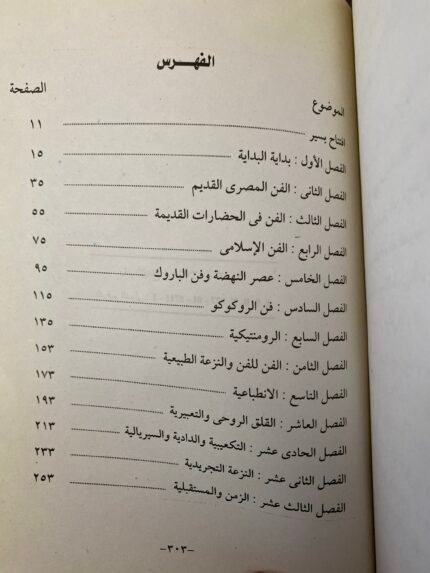 الفهرس
الموضوع الصفحة
افتتاح يسير ١١
الفصل الأول : بداية البداية ١٥
الفصل الثانى : الفن المصرى القديم ٣٥
الفصل الثالث : الفن فى الحضارات القديمة ٥٥
الفصل الرابع : الفن الإسلامى ٧٥
الفصل الخامس : عصر النهضة وفن الباروك ٩٥
الفصل السادس : فن الروكوكو ١١٥
الفصل السابع : الرومنتيكية ١٣٥
الفصل الثامن : الفن للفن والنزعة الطبيعية ١٥٣
الفصل التاسع : الانطباعية ١٧٣
الفصل العاشر : القلق الروحى والتعبيرية ١٩٣
الفصل الحادى عشر : التكعيبية والدادية والسيريالية ٢١٣
الفصل الثانى عشر : النزعة التجريدية ٢٣٣
الفصل الثالث عشر : الزمن والمستقبلية ٢٥٣
-٣٠٣-